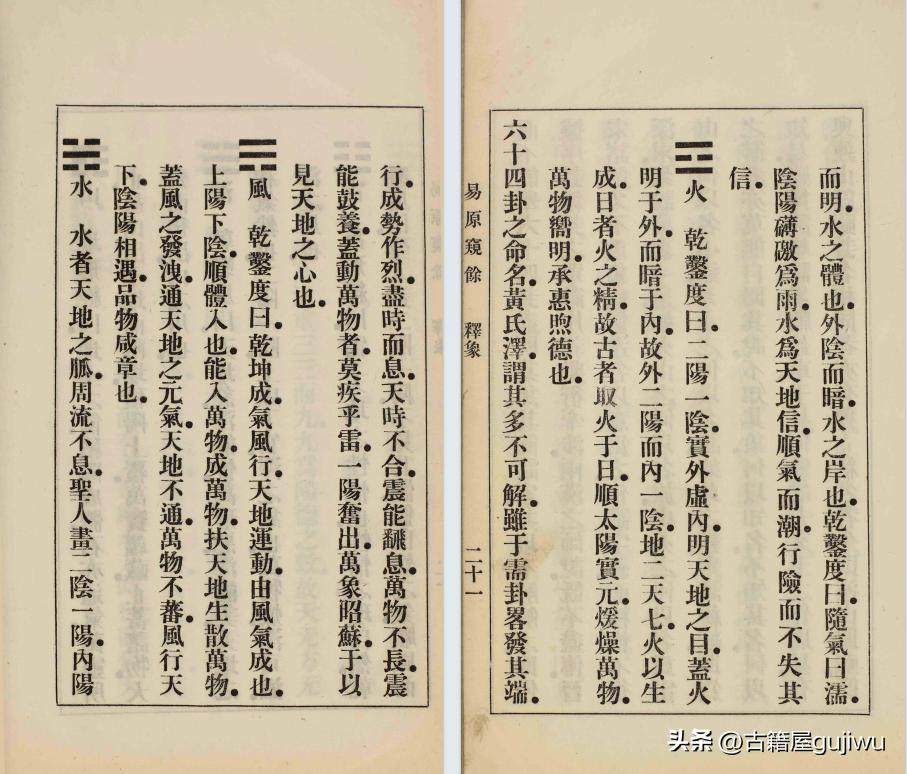 行。成勢作烈。盡時而息。天時不合。震能飜息。萬物不長。震
能鼓養。蓋動萬物者。莫疾乎雷。一陽奮出。萬象昭蘇。于以
見天地之心也。
☴風　乾鑿度曰。乾坤成氣。風行天地運動。由風氣成也。
上陽下陰。順體入也。能入萬物。成萬物。扶天地生散萬物。
蓋風之發洩。通天地之元氣。天地不通。萬物不蕃。風行天
下。陰陽相遇。品物咸章也。
☵水　水者天地之脈。周流不息。聖人畫二陰一陽。內陽
而明。水之體也。外陰而暗。水之岸也。乾鑿度曰。隨氣曰濡。
陰陽礴礉爲雨。水爲天地信。順氣而潮。行險而不失其
信。
☲火　乾鑿度曰。二陽一陰。實外虛內。明天地之目。蓋火
明于外。而暗于內。故外二陽而內一陰。地二天七。火以生
成。日者火之精。故古者取火于日。順太陽實元。煖燥萬物。
萬物嚮明。承惠煦德也。
六十四卦之命名。黃氏澤謂其多不可解。雖于需卦畧發其端。
易原窺餘　釋象　二十一
头条 @古籍屋gujiwu